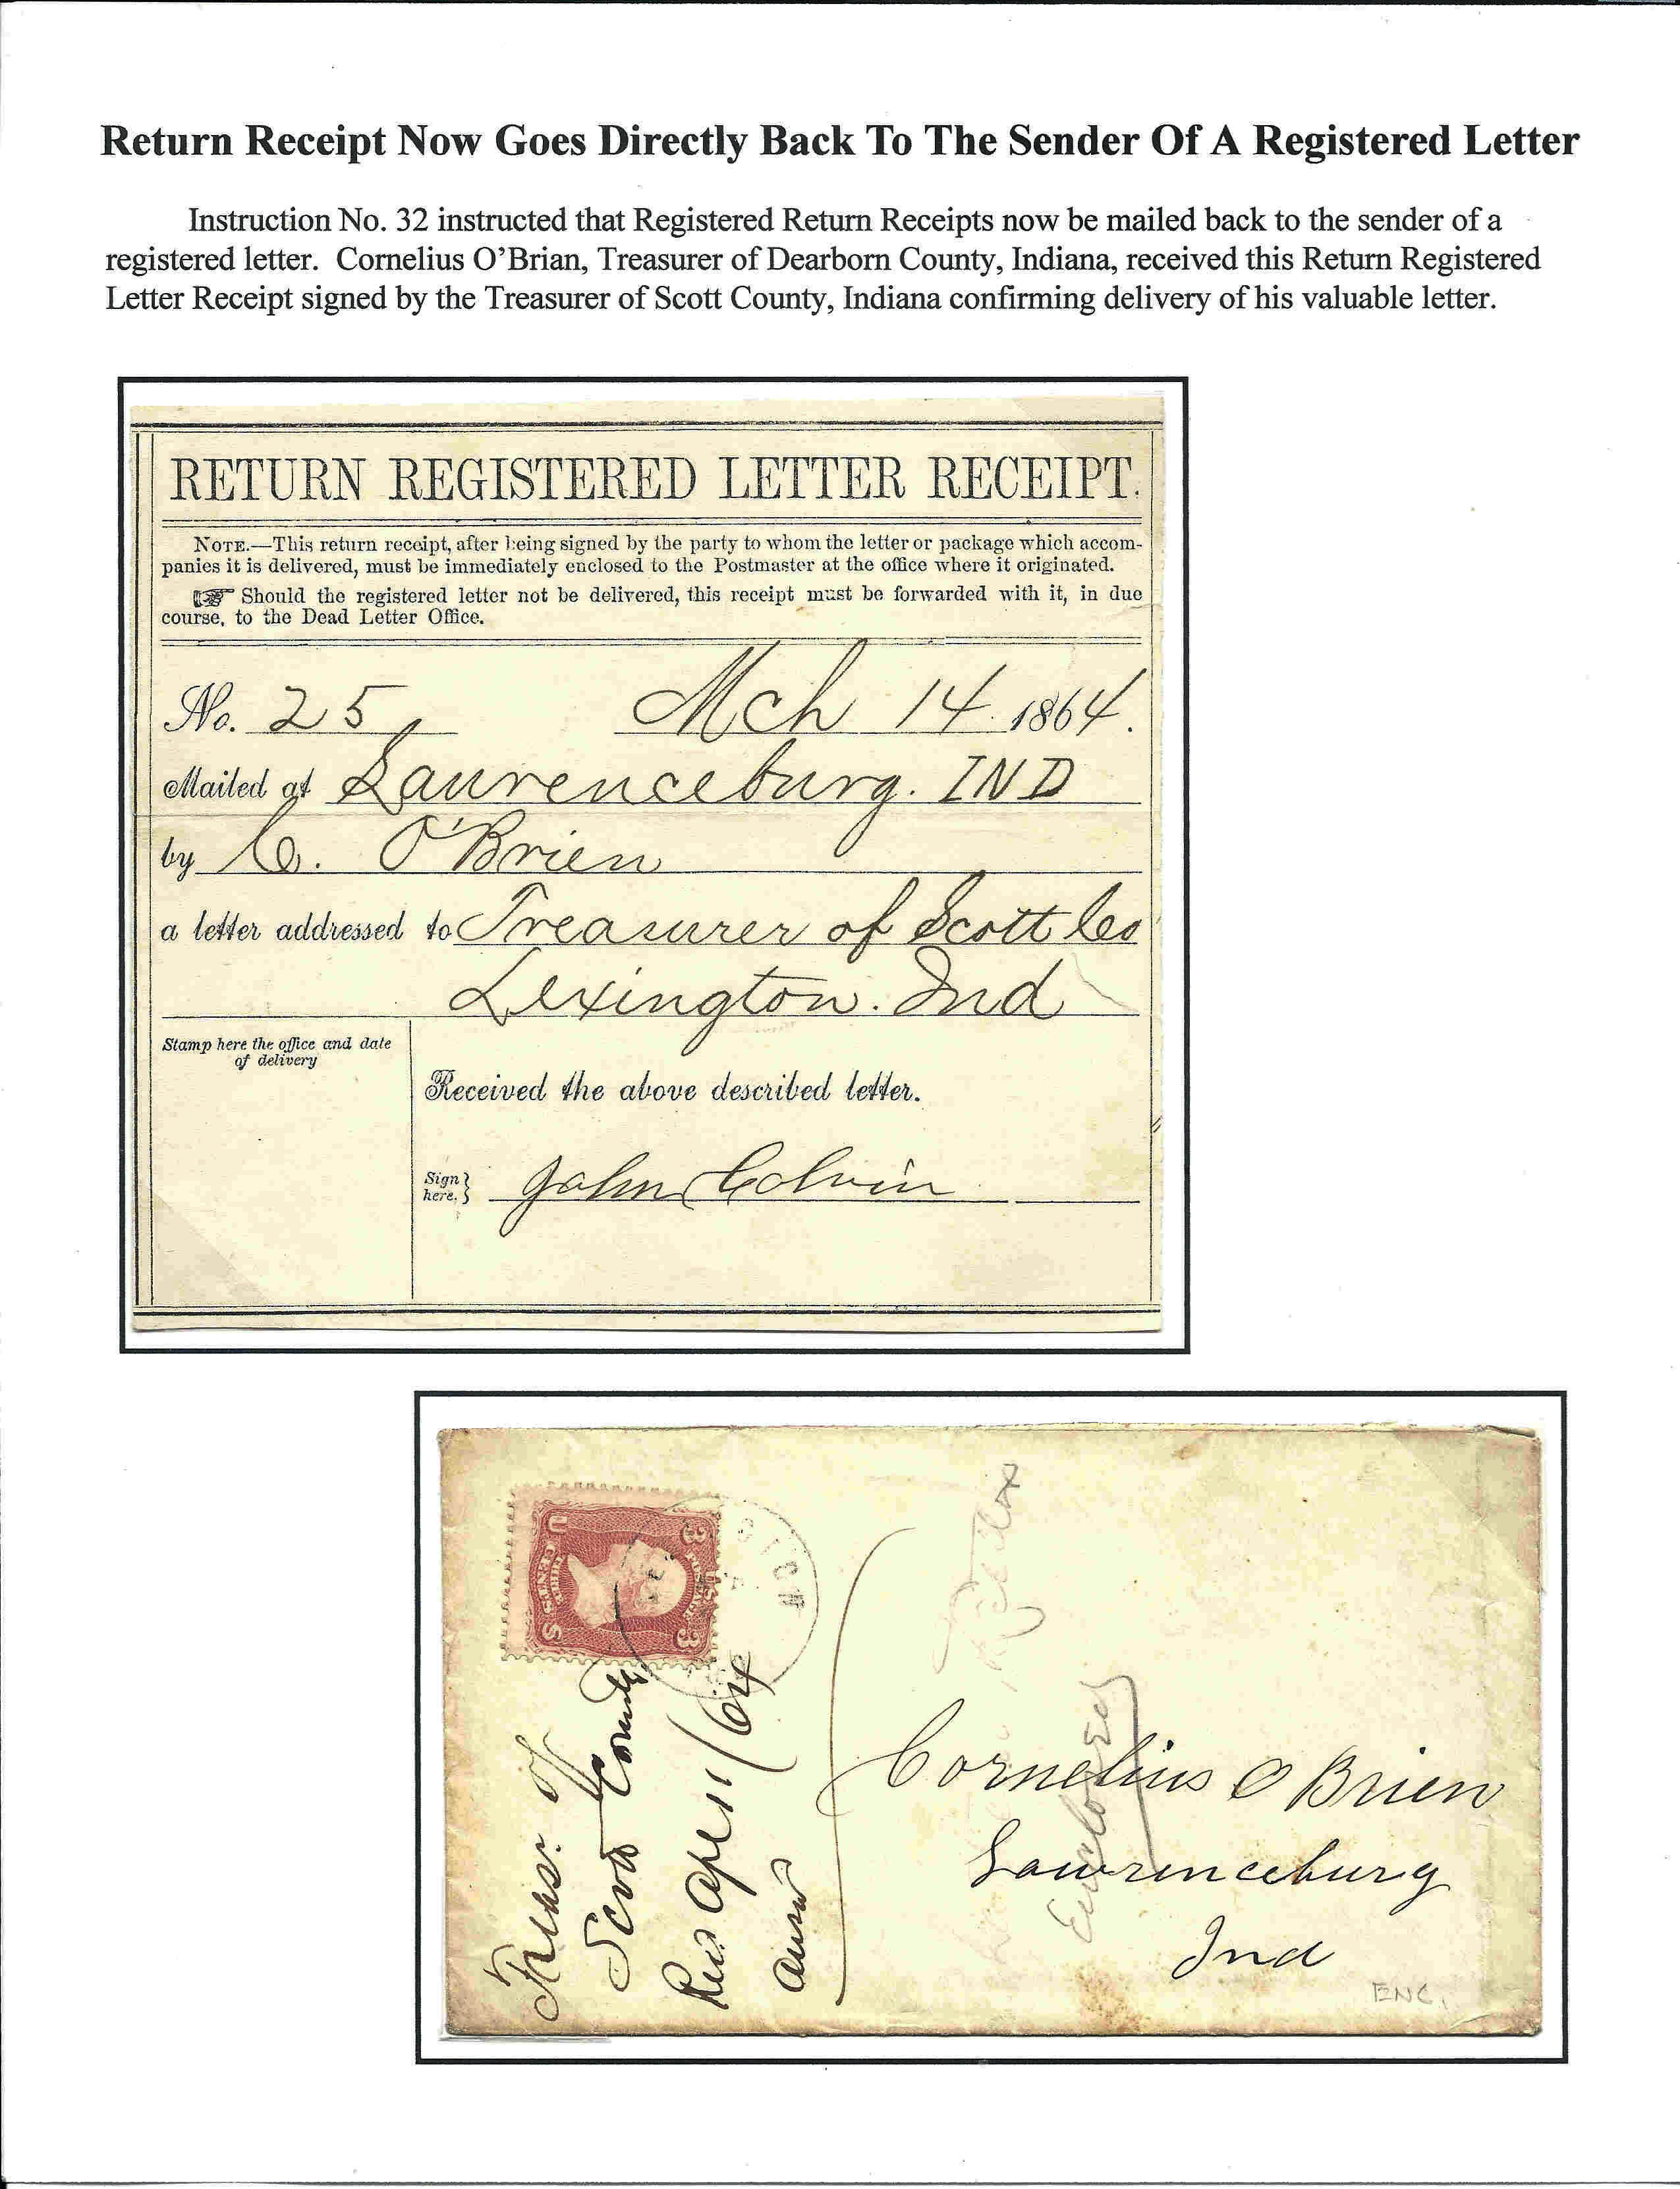 Return Receipt Now Goes Directly Back To The Sender Of A Registered Letter
Instruction No. 32 instructed that Registered Return Receipts now be mailed back to the sender of a
registered letter. Cornelius O'Brian, Treasurer of Dearborn County, Indiana, received this Return Registered
Letter Receipt signed by the Treasurer of Scott County, Indiana confirming delivery of his valuable letter.
RETURN REGISTERED LETTER RECEIPT.
NOTE.—This return receipt, after being signed by the party to whom the letter or package which accom-
panies it is delivered, must be immediately enclosed to the Postmaster at the office where it originated.
☞ Should the registered letter not be delivered, this receipt must be forwarded with it, in due
course, to the Dead Letter Office.
No. 25 Mch 14 1864.
Mailed at Laurenceburg. IND
by C. O'Brien
a letter addressed to Treasurer of Scott Co
Lexington. Ind
Stamp here the office and date
of delivery
Received the above described letter.
Sign here. John Colvin
U S
3 3
THREE CENTS
Treas. of
Scott County
Recd Apl 11/64
Cornelius O Brien
Lawrenceburg
Ind
Enclosed
ENC.